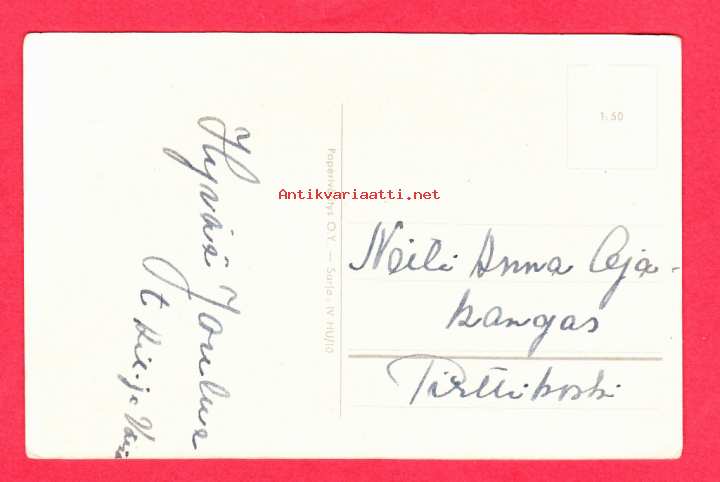 Hyvää Joulua
t
1:50
Paperiväritys O.Y. — Sarja. IV HU/10
Antikvariaatti.net
Neiti Anna Oja-
kangas
Pirttikoski